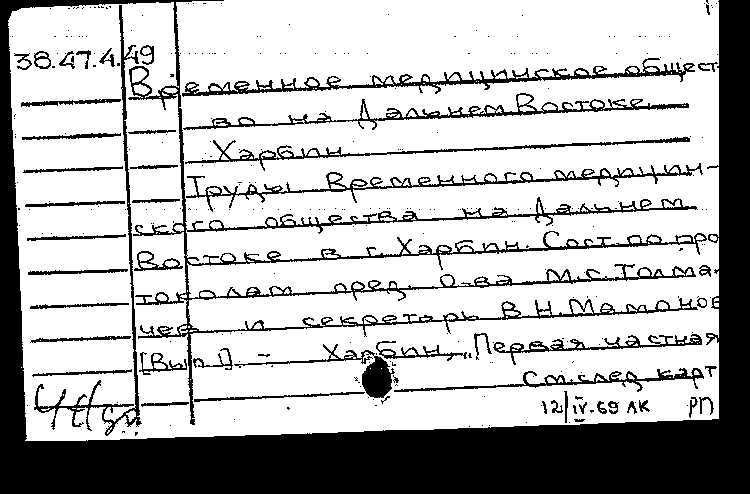 38.47.4.49
Временное медицинское общест-
во на Дальнем Востоке.
Харбин
Труды Временного медицин-
ского общества на Дальнем
Востоке в г. Харбин. Сост. по про
токолам пред. о-ва М.С. Толма-
чев и секретарь В.Н. Мамонов
[Вып 1]. - Харбин, „Первая частная
См. след карт
12/IV-69 ЛК РП